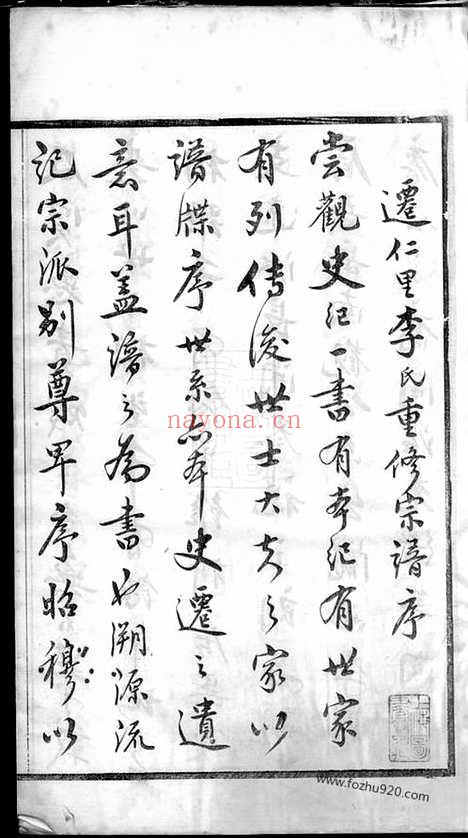 遷仁里李氏重修宗譜序
嘗觀史记一書有本记有世家
有列传後世士大夫之家以
譜牒序世系亦本史遷之遺
意耳盖譜之為書也溯源流
记宗派别尊卑序昭穆以
nayona.cn
www.fozhu920.com